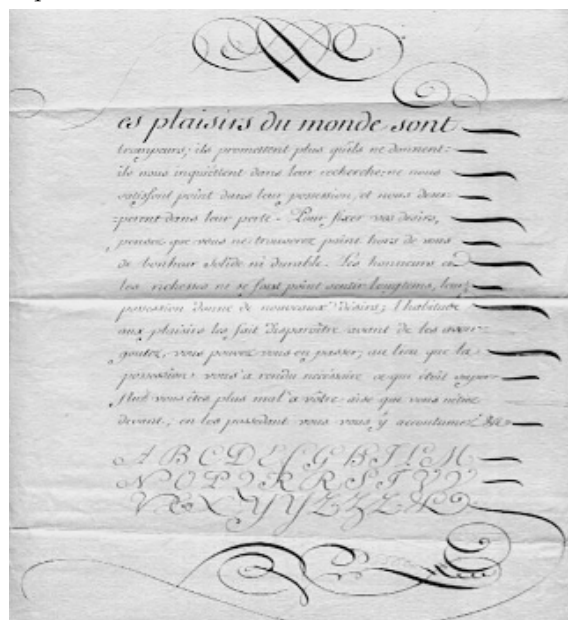 es plaisirs du monde sont
trompeurs; ils promettent plus qu'ils ne donnent:
ils nous inquiètent dans leur recherche; ne nous
satisfont point dans leur possession, et nous deses-
-perent dans leur perte. Pour fixer vos désirs,
pensez que vous ne trouverez point hors de vous
de bonheur solide ni durable. Les honneurs et
les richesses ne se font point sentir longtems, leur
possession donne de nouveaux désirs; l'habitude
aux plaisirs les fait disparoître avant de les avoir
goutez, vous pouvez vous en passer; au lieu que la
possession vous a rendu nécessaire ce qui étoit super-
flu: vous êtes plus mal à vôtre aise que vous n'étiez
devant; en les possedant vous vous y accoutumez
A B C D E G H I L M
N O P R R S T V
X Y Y Z Z